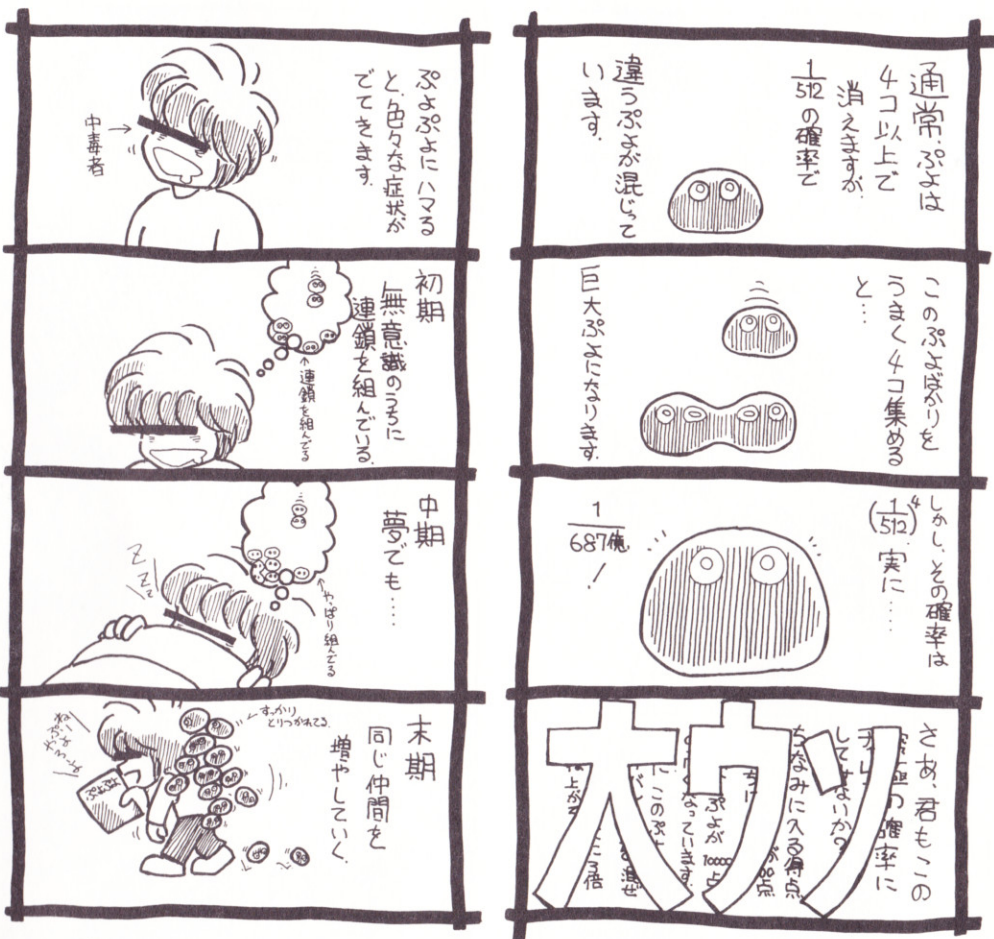 通常、ぷよは
4コ以上で
消えますが、
1/512の確率で
違うぷよが混じって
います。
このぷよばかりを
うまく4コ集める
と…
巨大ぷよになります。
しかし、その確率は
(1/512)⁴ 実に……
1/687億!
さあ、君もこの
の確率に
してみないか?
ちなみに入る得点
ぷよが10000点
なっています。
大ウソ
ぷよぷよにハマる
と、色々な症状が
でてきます。
→
中毒者
初期
無意識のうちに
連鎖を組んでいる。
←連鎖を組んでる
中期
夢でも……
←やっぱり組んでる
Z Z Z Z
末期
同じ仲間を
増やしていく。
すっかり
とりつかれてる。
ねー
ぷよ
やろうよ
ぷよぷよ